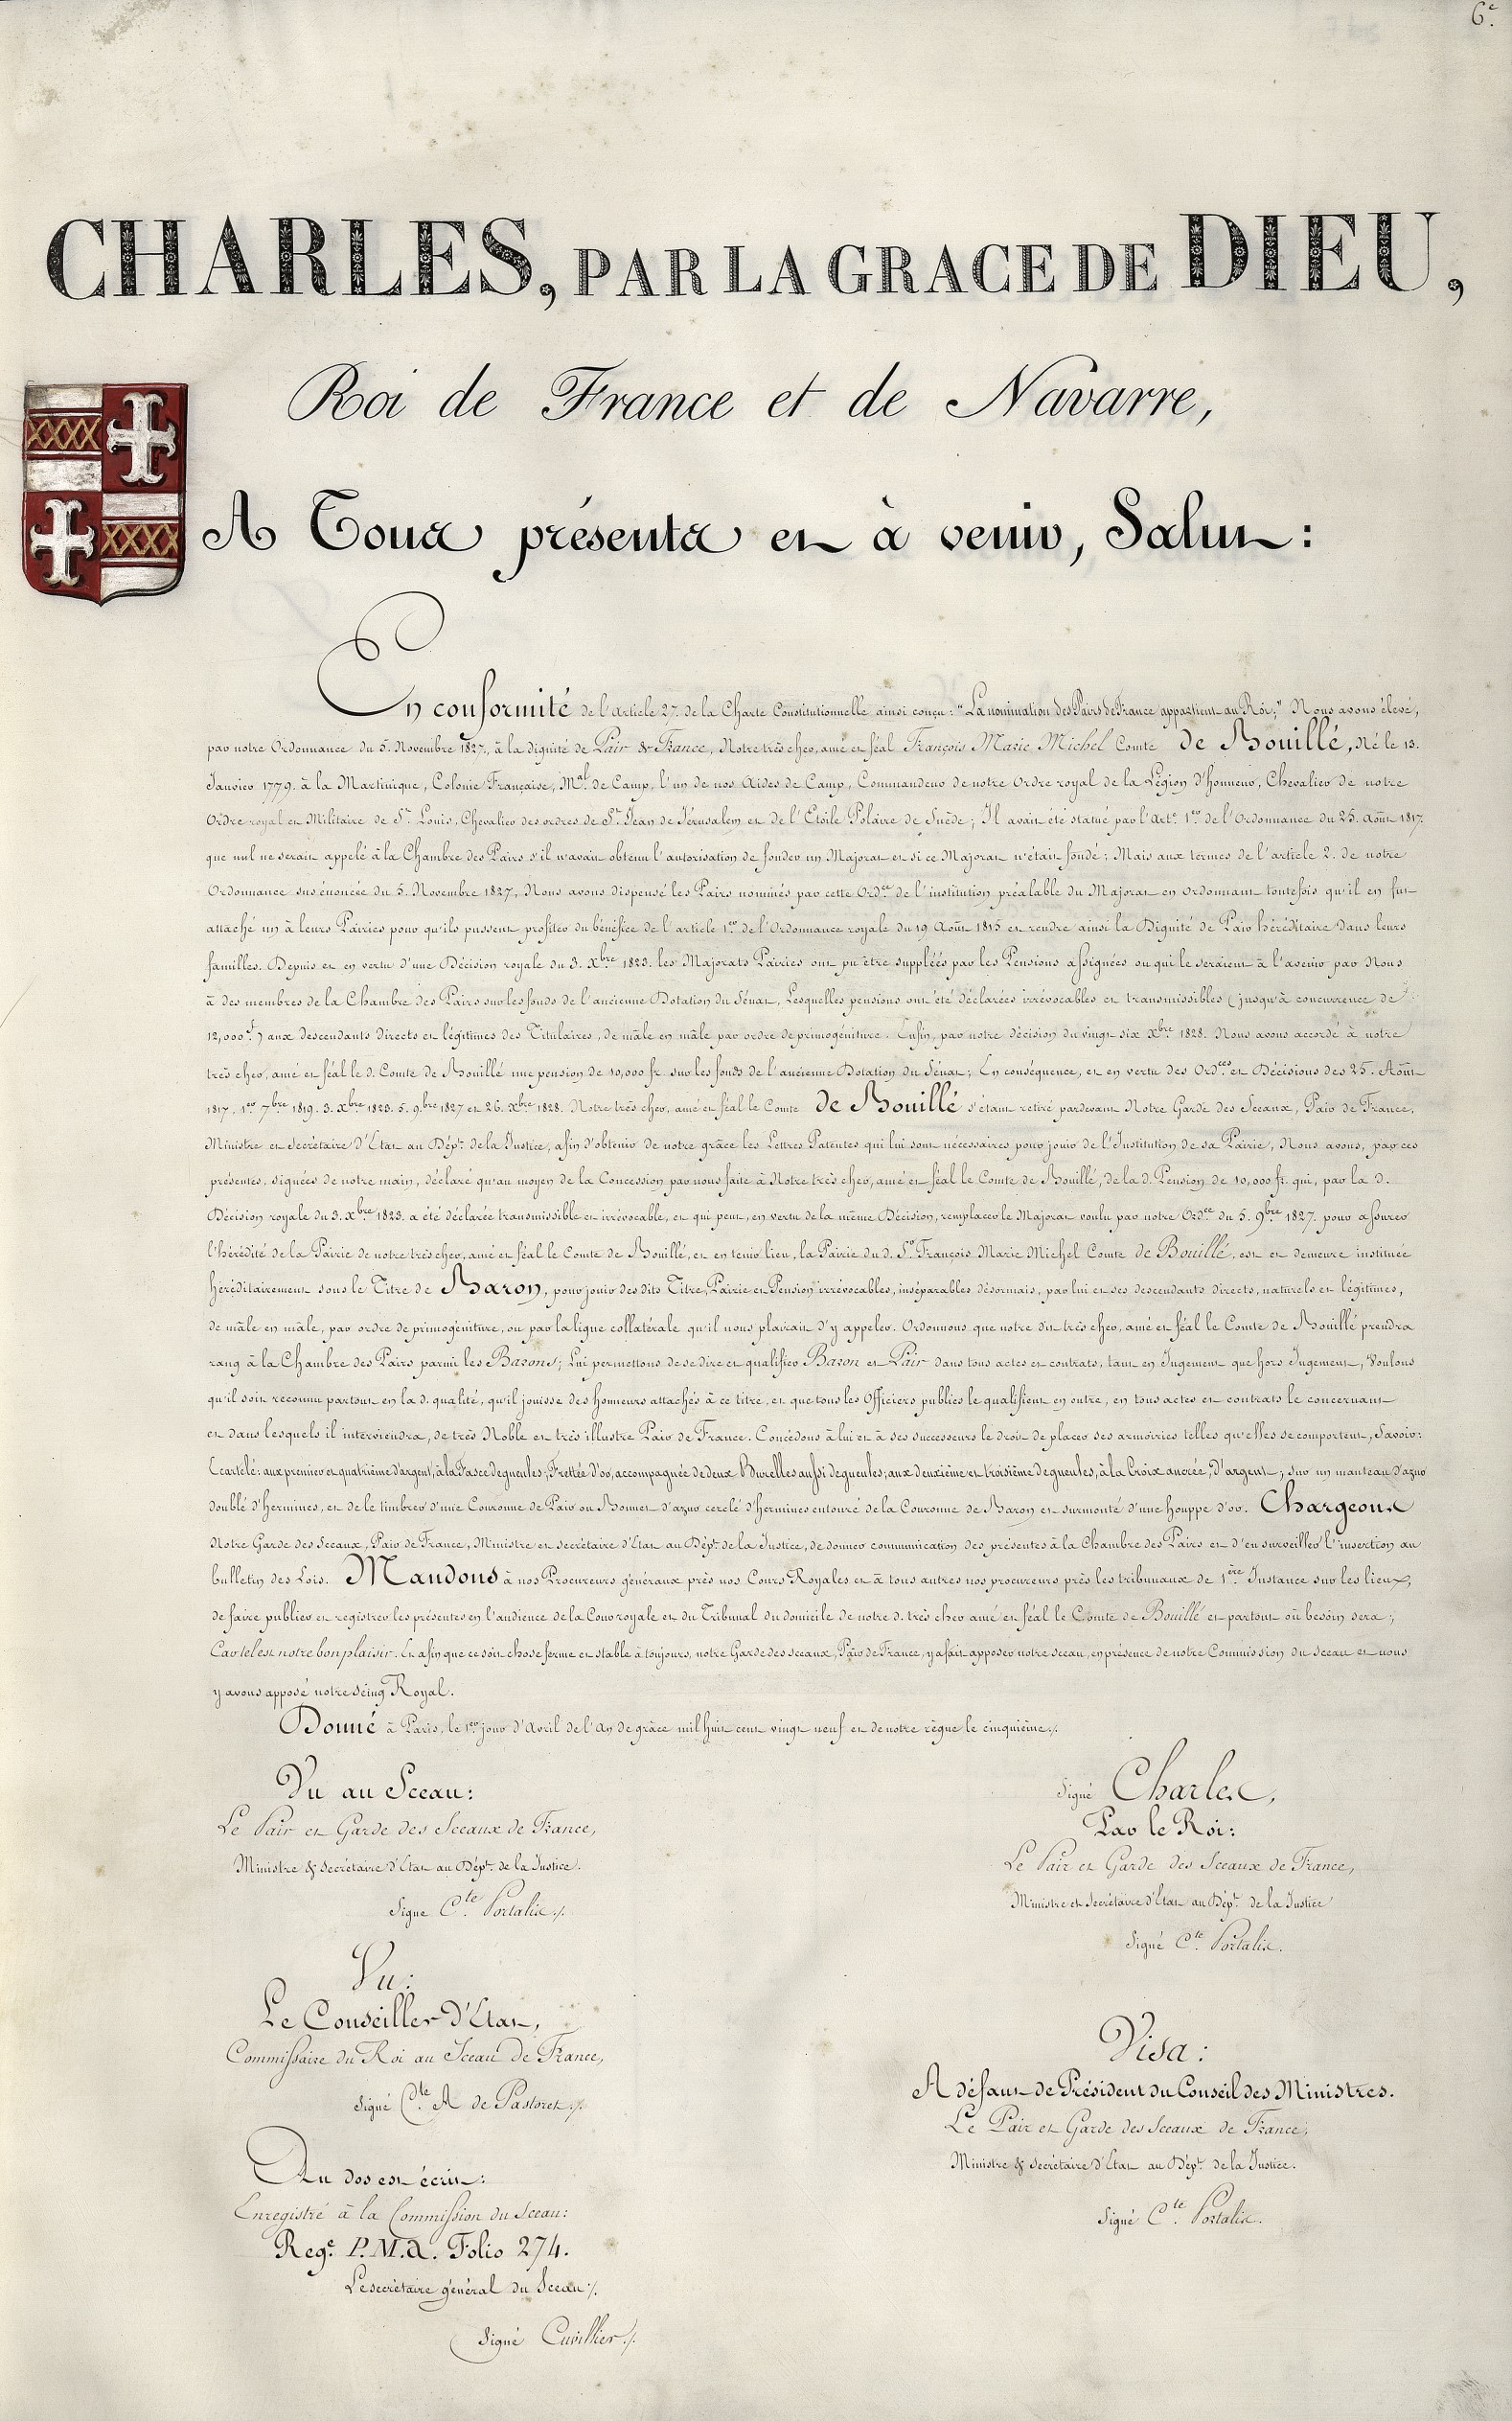 6.e
CHARLES, PAR LA GRACE DE DIEU,
Roi de France et de Navarre,
A Tous présents et à venir, Salut:
En conformité de l'article 27. de la Charte Constitutionnelle ainsi conçu: "La nomination des Pairs de France appartient au Roi;" Nous avons élevé,
par notre Ordonnance du 5. Novembre 1827, à la dignité de Pair de France, Notre très cher, amé et féal François Marie Michel Comte de Bouillé, Né le 13.
Janvier 1779. à la Martinique, Colonie Française, Mal. de Camp, l'un de nos Aides de Camp, Commandeur de notre Ordre royal de la Légion d'honneur, Chevalier de notre
Ordre royal et Militaire de St. Louis, Chevalier des ordres de St. Jean de Jérusalem et de l'Etoile Polaire de Suède; Il avait été statué par l'Art. 1er de l'Ordonnance du 25. Août 1817.
que nul ne serait appelé à la Chambre des Pairs s'il n'avait obtenu l'autorisation de fonder un Majorat et si ce Majorat n'était fondé; Mais aux termes de l'article 2. de notre
Ordonnance sus énoncée du 5. Novembre 1827, Nous avons dispensé les Pairs nommés par cette Ordce de l'institution préalable du Majorat en ordonnant toutefois qu'il en fut
attaché un à leurs Pairies pour qu'ils pussent profiter du bénéfice de l'article 1er de l'Ordonnance royale du 19 Août 1815 et rendre ainsi la Dignité de Pair héréditaire dans leurs
familles. Depuis et en vertu d'une Décision royale du 3. Xbre 1823. les Majorats Pairies ont pu être suppléés par les Pensions assignées ou qui le seraient à l'avenir par Nous
à des membres de la Chambre des Pairs sur les fonds de l'ancienne Dotation du Sénat, Lesquelles pensions ont été déclarées irrévocables et transmissibles (jusqu'à concurrence de
12,000 f) aux descendants directs et légitimes des Titulaires, de mâle en mâle par ordre de primogéniture. Enfin, par notre décision du vingt six Xbre 1828. Nous avons accordé à notre
très cher, amé et féal le d. Comte de Bouillé une pension de 10,000 fr. sur les fonds de l'ancienne Dotation du Sénat; En conséquence, et en vertu des Ordces et Décisions des 25. Août
1817. 1er 7bre 1819. 3. Xbre 1823. 5. 9bre 1827 et 26. Xbre 1828. Notre très cher, amé et féal le Comte de Bouillé s'étant retiré pardevant Notre Garde des Sceaux, Pair de France,
Ministre et Secrétaire d'Etat au Dépt. de la Justice, afin d'obtenir de notre grâce les Lettres Patentes qui lui sont nécessaires pour jouir de l'Institution de sa Pairie, Nous avons, par ces
présentes, signées de notre main, déclaré qu'au moyen de la Concession par nous faite à Notre très cher, amé et féal le Comte de Bouillé, de la d. Pension de 10,000 fr. qui, par la d.
Décision royale du 3. Xbre 1823. a été déclarée transmissible et irrévocable, et qui peut, en vertu de la même Décision, remplacer le Majorat voulu par notre Ordce du 5. 9bre 1827. pour assurer
l'hérédité de la Pairie de notre très cher, amé et féal le Comte de Bouillé, et en tenir lieu, la Pairie du d. Sr. François Marie Michel Comte de Bouillé, est et demeure instituée
héréditairement sous le Titre de Baron, pour jouir des dits Titre, Pairie et Pension irrévocables, inséparables désormais, par lui et ses descendants directs, naturels et légitimes,
de mâle en mâle, par ordre de primogéniture, ou par la ligne collatérale qu'il nous plairait d'y appeler. Ordonnons que notre dit très cher, amé et féal le Comte de Bouillé prendra
rang à la Chambre des Pairs parmi les Barons; Lui permettons de se dire et qualifier Baron et Pair dans tous actes et contrats, tant en Jugement que hors Jugement, Voulons
qu'il soit reconnu partout en la d. qualité, qu'il jouisse des honneurs attachés à ce titre, et que tous les Officiers publics le qualifient en outre, en tous actes et contrats le concernant
et dans lesquels il interviendra, de très Noble et très illustre Pair de France. Concédons à lui et à ses successeurs le droit de placer ses armoiries telles qu'elles se comportent, Savoir:
Ecartelé: aux premier et quatrième d'argent, à la Fasce de gueules, Frettée d'or, accompagnée de deux Burelles aussi de gueules; aux deuxième et troisième de gueules, à la Croix ancrée, d'argent; sur un manteau d'azur
doublé d'hermines, et de le timbrer d'une Couronne de Pair ou Bonnet d'azur cerclé d'hermines entouré de la Couronne de Baron et surmonté d'une houppe d'or. Chargeons
Notre Garde des Sceaux, Pair de France, Ministre et secrétaire d'Etat au Dépt. de la Justice, de donner communication des présentes à la Chambre des Pairs et d'en surveiller l'insertion au
bulletin des Lois. Mandons à nos Procureurs généraux près nos Cours Royales et à tous autres nos procureurs près les tribunaux de 1ère Instance sur les lieux,
de faire publier et registrer les présentes en l'audience de la Cour royale et du Tribunal du domicile de notre d. très cher amé et féal le Comte de Bouillé et partout où besoin sera;
Car tel est notre bon plaisir. Et afin que ce soit chose ferme et stable à toujours, notre Garde des sceaux, Pair de France, y a fait apposer notre sceau, en présence de notre Commission du sceau et nous
y avons apposé notre seing Royal.
Donné à Paris, le 1er jour d'Avril de l'An de grâce mil huit cent vingt neuf et de notre règne le cinquième./.
Vu au Sceau:
Le Pair et Garde des Sceaux de France,
Ministre & Secrétaire d'Etat au Dépt. de la Justice.
Signé Cte. Portalis./.
Signé Charles,
Par le Roi:
Le Pair et Garde des Sceaux de France,
Ministre et Secrétaire d'Etat au Dépt. de la Justice
Signé Cte. Portalis.
Vu:
Le Conseiller d'Etat,
Commissaire du Roi au Sceau de France,
Signé Cte. A de Pastoret./.
Visa:
A défaut de Président du Conseil des Ministres.
Le Pair et Garde des Sceaux de France,
Ministre & Secrétaire d'Etat au Dépt. de la Justice.
Signé Cte. Portalis.
Au dos est écrit:
Enregistré à la Commission du Sceau:
Rege. P.M.a. Folio 274.
Le secrétaire général du Sceau./.
Signé Cuvillier./.